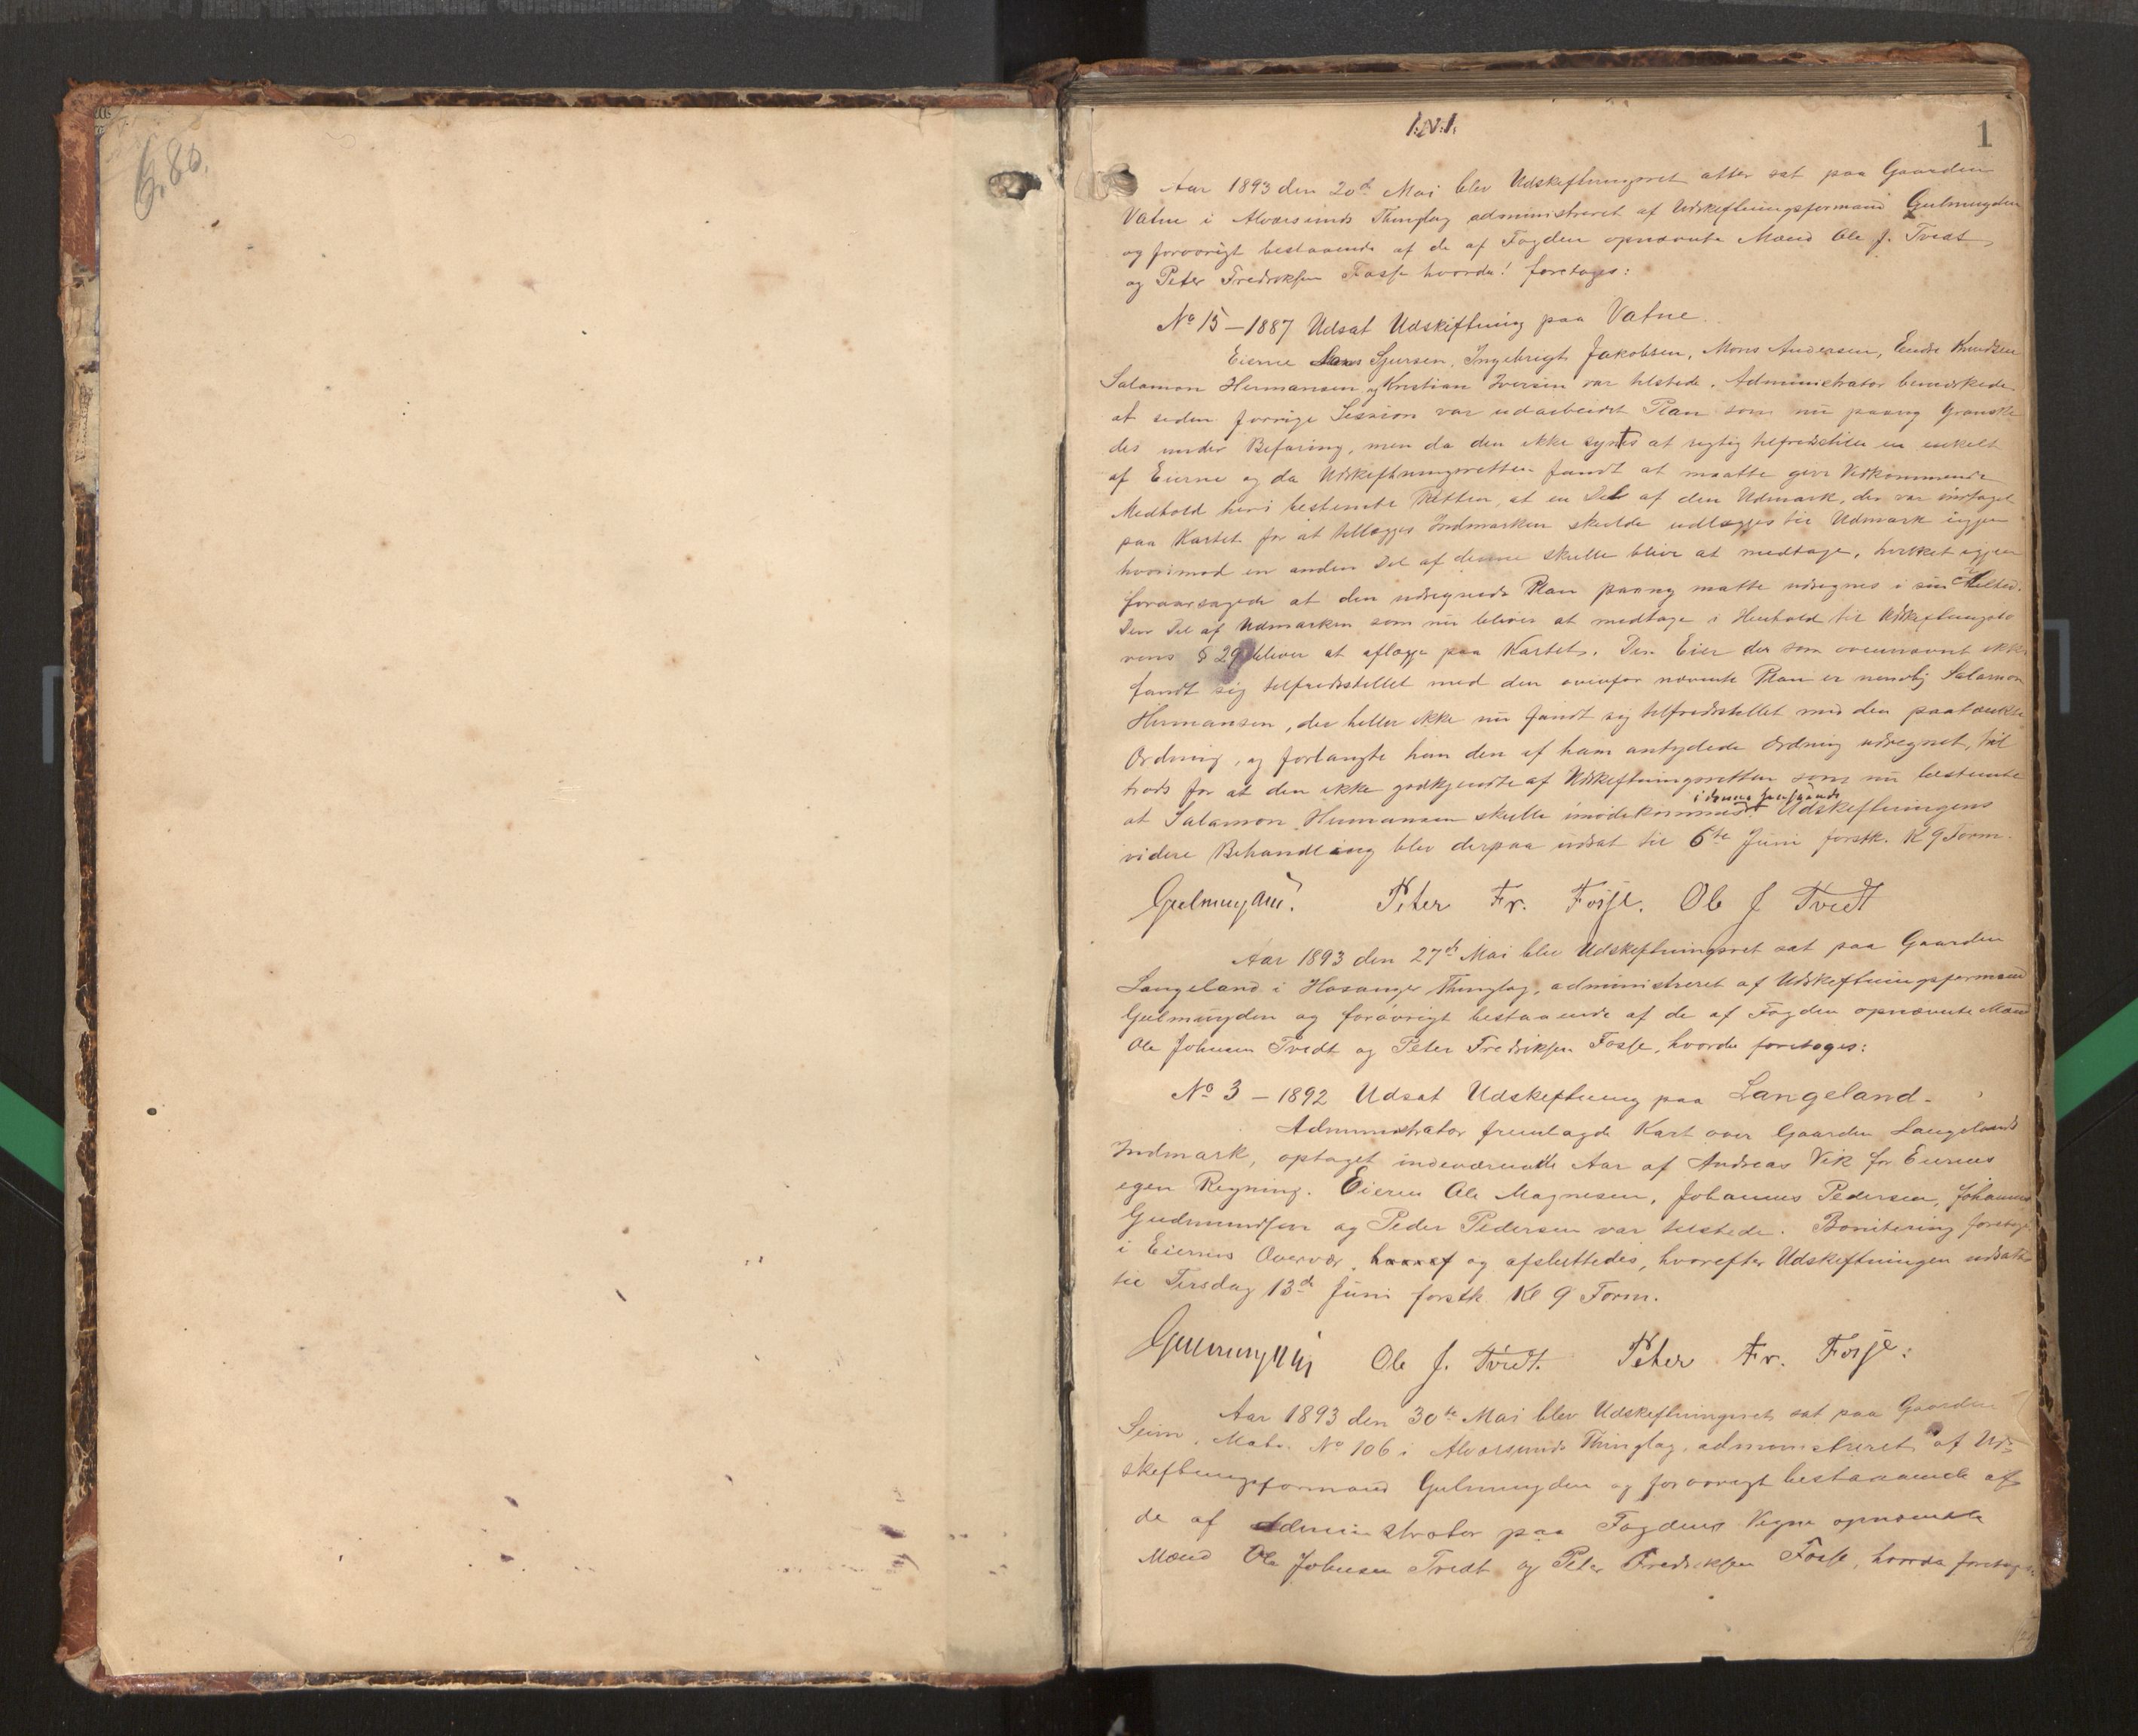 6.80.
1
I.N.I.
Aar 1893 den 20de Mai blev Udskiftningsret atter sat paa Gaarden
Vatne i Alversunds Thinglag administreret af Udskiftningsformand Gulmugden
og forøvrigt bestaaende af de af Fogden opnævnte Mænd Ole J. Tvedt
og Peter Fredriksen Fosse hvorda! foretoges:
No 15 – 1887 Udsat Udskiftning paa Vatne.
Eierne Lars Sjursen, Ingebrigt Jakobsen, Mons Andersen, Endre Knudsen
Salamon Hermansen og Kristian Iversen var tilstede. Administrator bemærkede
at siden forrige Session var udarbeidet Plan som nu paany granske
des under Befaring, men da den ikke syntes at rigtig tilfredsstille en enkelt
af Eierne og da Udskiftningsretten fandt at maatte give Vedkommende
Medhold heri bestemte Retten, at en Del af den Udmark, der var indtaget
paa Kartet for at tillægges Indmarken skulde udlægges til Udmark igjen
hvorimod en anden Del af denne skulle blive at medtage, hvilket igjen
foraarsagede at den udregnede Plan paany matte udregnes i sin Helhed.
Den Del af Udmarken som nu bliver at medtage i Henhold til Udskiftningslo
vens § 29 bliver at aflægge paa Kartet. Den Eier der som ovennævnt ikke
fandt sig tilfredsstillet med den ovenfor nævnte Plan er nemlig Salamon
Hermansen, der heller ikke nu fandt sig tilfredsstillet med den paatænkte
Ordning, og forlangte han den af ham antydede Ordning udregnet, til
trods for at den ikke godkjendtes af Udskiftningsretten som nu bestemte
at Salamon Hermansen skulle imødekommes i denne henseende. Udskiftningens
videre Behandling blev derpaa udsat til 6te Juni førstk. Kl 9 Form.
Gulmugden. Peter Fr. Fosse. Ole J Tvedt
Aar 1893 den 27de Mai blev Udskiftningsret sat paa Gaarden
Langeland i Hosanger Thinglag, administreret af Udskiftningsformand
Gulmugden og forøvrigt bestaaende af de af Fogden opnævnte Mænd
Ole Johnsen Tvedt og Peter Fredriksen Fosse, hvorda foretoges:
No 3 – 1892 Udsat Udskiftning paa Langeland.
Administrator fremlagde Kart over Gaarden Langelands
Indmark, optaget indeværende Aar af Andreas Vik for Eiernes
egen Regning. Eierne Ole Magnesen, Johannes Pedersen, Johannes
Gudmundsen og Peder Pedersen var tilstede. Bonitering foretoges
i Eiernes Overvær og afsluttedes, hvorefter Udskiftningen udsattes
til Tirsdag 13de Juni førstk. Kl 9 Form.
Gulmugden Ole J. Tvedt. Peter Fr. Fosse.
Aar 1893 den 30te Mai blev Udskiftningsret sat paa Gaarden
Seim, Matr. No 106 i Alversunds Thinglag, administreret af Ud-
skiftningsformand Gulmugden og forøvrigt bestaaende af
de af Administrator paa Fogdens Vegne opnævnte
Mænd Ole Johnsen Tvedt og Peter Fredriksen Fosse, hvorda foretoges